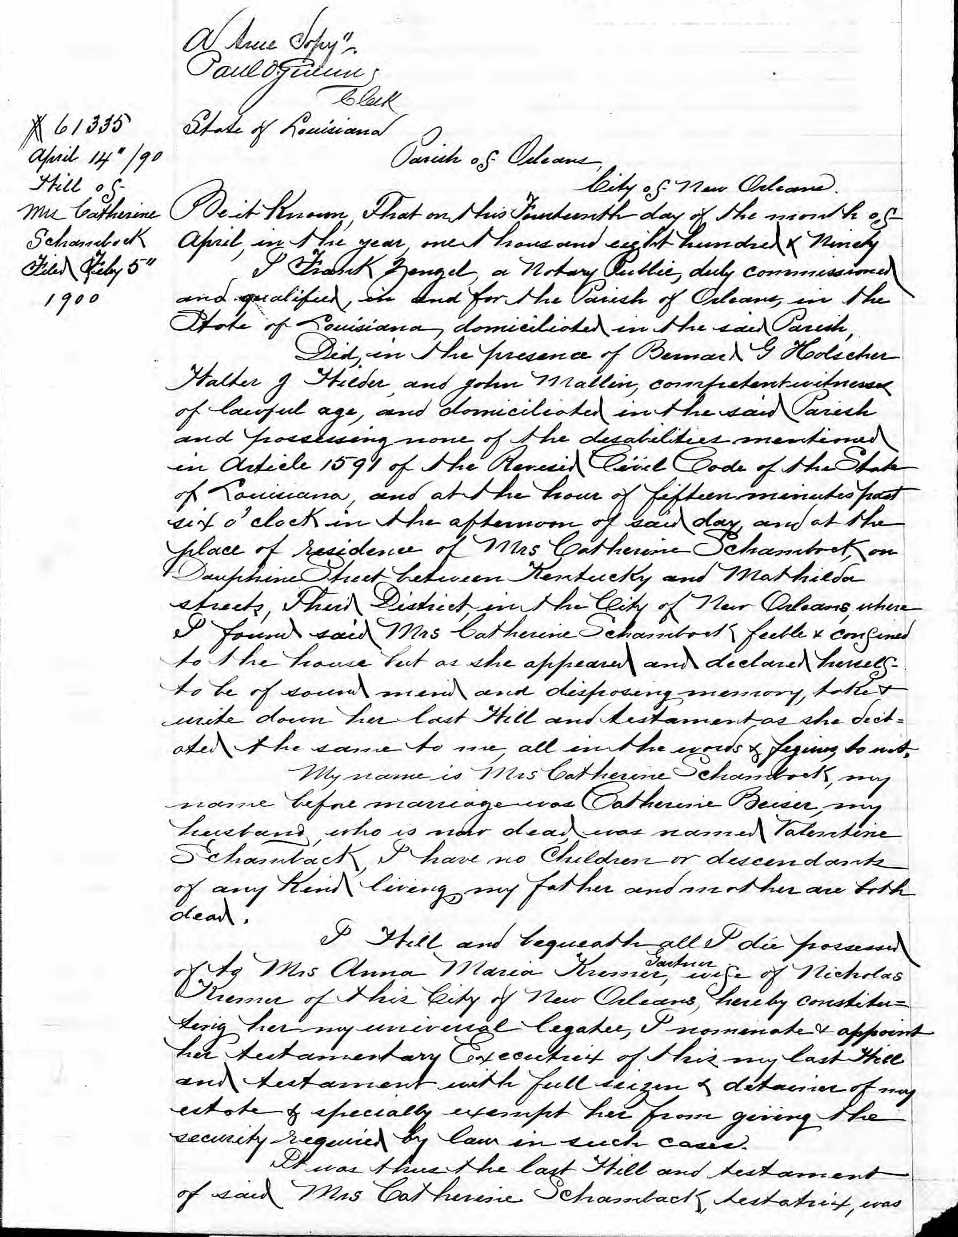 A true Copy"
Paul
Clerk
State of Louisiana
Parish of Orleans,
City of New Orleans.
# 61335
April 14"/90
Will of
Mrs Catherine
Schambock
Filed Feby 5"
1900
Be it Known, That on this Fourteenth day of the month of
April, in the year, one thousand eight hundred & Ninety
I Frank Zengel, a Notary Public, duly commissioned
and qualified, in and for the Parish of Orleans, in the
State of Louisiana, domiciliated in the said Parish,
Did, in the presence of Bernard G Holscher
Walter J Wilder, and John Mallin, competent witnesses
of lawful age, and domiciliated in the said Parish
and possessing none of the disabilities mentioned
in Article 1591 of the Revised Civil Code of the State
of Louisiana, and at the hour of fifteen minutes past
six o'clock in the afternoon of said day, and at the
place of residence of Mrs Catherine Schambock, on
Dauphine Street between Kentucky and Mathilda
streets, Third District, in the City of New Orleans, where
I found said Mrs Catherine Schambock feeble & confined
to the house but as she appeared and declared herself
to be of sound mind and disposing memory, to take &
write down her last Will and testament as she dict=
ated the same to me, all in the words & figures, to wit,
My name is Mrs Catherine Schambock, my
name before marriage was Catherine Beiser, my
husband, who is now dead was named Valentine
Schamback, I have no Children or descendants
of any Kind living, my father and mother are both
dead.
I Will and bequeath all I die possessed
of to Mrs Anna Maria Kremer, Gartner wife of Nicholas
Kremer of this City of New Orleans, hereby constitu=
ting her my universal legatee, I nominate & appoint
her testamentary Executrix of this my last Will
and testament with full seizen & detainer of my
estate & specially exempt her from giving the
security required by law in such cases.
It was thus the last Will and testament
of said Mrs Catherine Schamback, testatrix, was